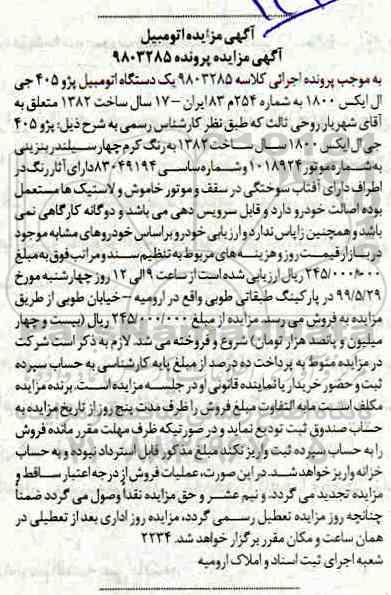 آگهی مزایده اتومبیل
آگهی مزایده پرونده ۹۸۰۳۲۸۵
به موجب پرونده اجرائی کلاسه ۹۸۰۳۲۸۵ یک دستگاه اتومبیل پژو ۴۰۵ جی
ال ایکس ۱۸۰۰ به شماره ۲۵۴م۸۳ ایران –۱۷ سال ساخت ۱۳۸۲ متعلق به
آقای شهریار روحی ثالث که طبق نظر کارشناس رسمی به شرح ذیل: پژو ۴۰۵
جی ال ایکس ۱۸۰۰ سـال سـاخت ۱۳۸۲ به رنگ کرم چهار سـیلندر بنزینی
به شـماره موتور ۱۰۱۸۹۲۴ و شماره ساسی ۸۳۰۴۹۱۹۴ دارای آثار رنگ در
اطراف دارای آفتاب سوختگی در سقف و موتور خاموش و لاستیک ها مستعمل
بوده اصالت خودرو دارد و قابل سرویس دهی می باشد و دوگانه کارگاهی نمی
باشد و همچنین زاپاس ندارد و ارزیابی خودرو براساس خودروهای مشابه موجود
در بازار قیمت روز و هزینه های مربوط به تنظیم سند و مراتب فوق به مبلغ
۲۴۵/۰۰۰/۰۰۰ ریال ارزیابی شده است از ساعت ۹ الی ۱۲ روز چهارشنبه مورخ
۹۹/۵/۲۹ در پارکینگ طبقاتی طوبی واقع در ارومیه –خیابان طوبی از طریق
مزایده به فروش می رسد. مزایده از مبلغ ۲۴۵/۰۰۰/۰۰۰ ریال (بیست و چهار
میلیون و پانصد هزار تومان) شروع و فروخته می شد. لازم به ذکر است شرکت
در مزایده منوط به پرداخت ده درصد از مبلغ پایه کارشناسی به حساب سپرده
ثبت و حضور خریدار یا نماینده قانونی او در جلسه مزایده است. برنده مزایده
مکلف است مابه التفاوت مبلغ فروش را ظرف مدت پنج روز از تاریخ مزایده به
حساب صندوق ثبت تودیع نماید و در صورتیکه ظرف مهلت مقرر مانده فروش
را به حساب سپرده ثبت واریز نکند مبلغ مذکور قابل استرداد نبوده و به حساب
خزانه واریز خواهد شـد. در این صورت، عملیات فروش از درجه اعتبار ساقط و
مزایده تجدید می گردد. و نیم عشـر و حق مزایده نقدا وصول می گردد ضمناً
چنانچه روز مزایده تعطیل رسـمی گردد، مزایده روز اداری بعد از تعطیلی در
همان ساعت و مکان مقرر برگزار خواهد شد. ۲۲۳۴
شعبه اجرای ثبت اسناد و املاک ارومیه